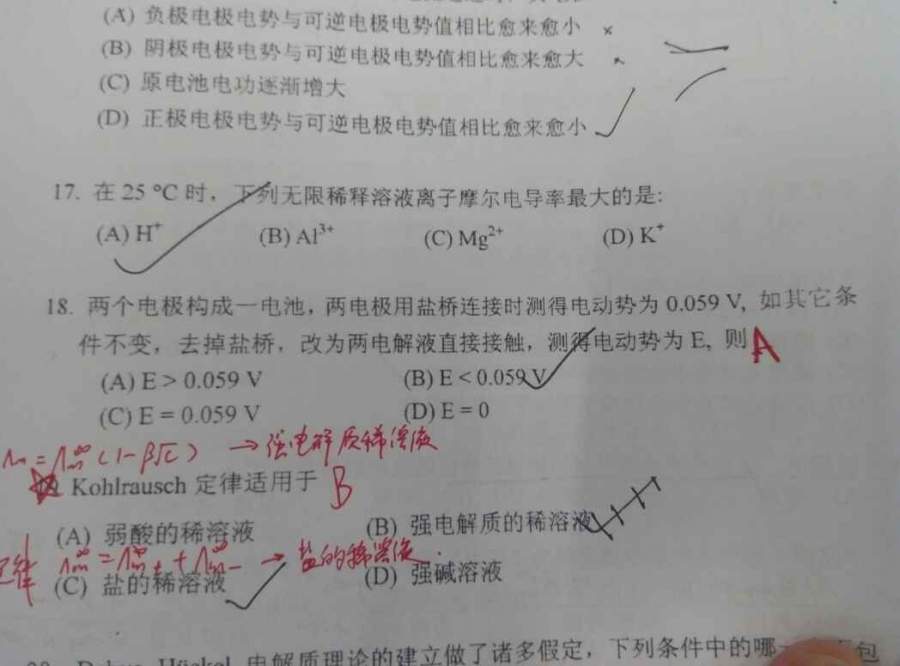 (A) 负极电极电势与可逆电极电势值相比愈来愈小 ×
(B) 阴极电极电势与可逆电极电势值相比愈来愈大
(C) 原电池电功逐渐增大
(D) 正极电极电势与可逆电极电势值相比愈来愈小
17. 在 25 °C 时，下列无限稀释溶液离子摩尔电导率最大的是:
(A) H⁺ (B) Al³⁺ (C) Mg²⁺ (D) K⁺
18. 两个电极构成一电池，两电极用盐桥连接时测得电动势为 0.059 V, 如其它条
件不变，去掉盐桥，改为两电解液直接接触，测得电动势为 E, 则 A
(A) E > 0.059 V (B) E < 0.059 V
(C) E = 0.059 V (D) E = 0
Λm = Λm∞ (1-β√c) → 强电解质稀溶液
Kohlrausch 定律适用于 B
(A) 弱酸的稀溶液 (B) 强电解质的稀溶液
定律 Λm∞ = Λm∞+ + Λm∞- → 盐的稀溶液.
(C) 盐的稀溶液 (D) 强碱溶液
电解质理论的建立做了诸多假定，下列条件中的哪